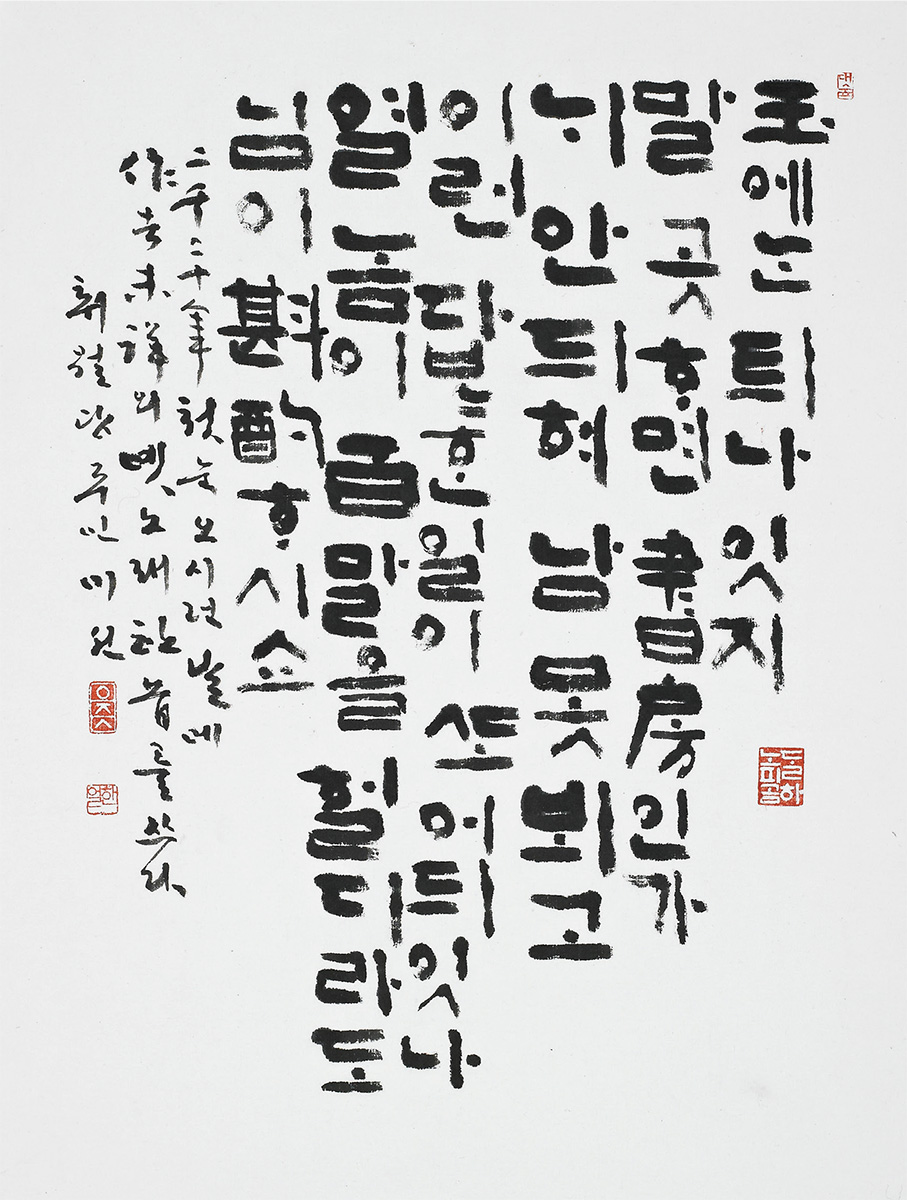 玉에ᄂᆞᆫ 틔나 잇지
말 곳 ᄒᆞ면 書房인가
ᄂᆡ 안 듸혀 남 못 뵈고
이런 답〻ᄒᆞᆫ 일이 ᄯᅩ 어듸 잇나
열 놈이 百 말을 헐디라도
님이 斟酌ᄒᆞ시쇼
二千二十年 첫눈 오시던 날에
作者未詳의 옛노래 한 首를 쓰다
월당주인
ᄃᆞᆯ하
노피곰